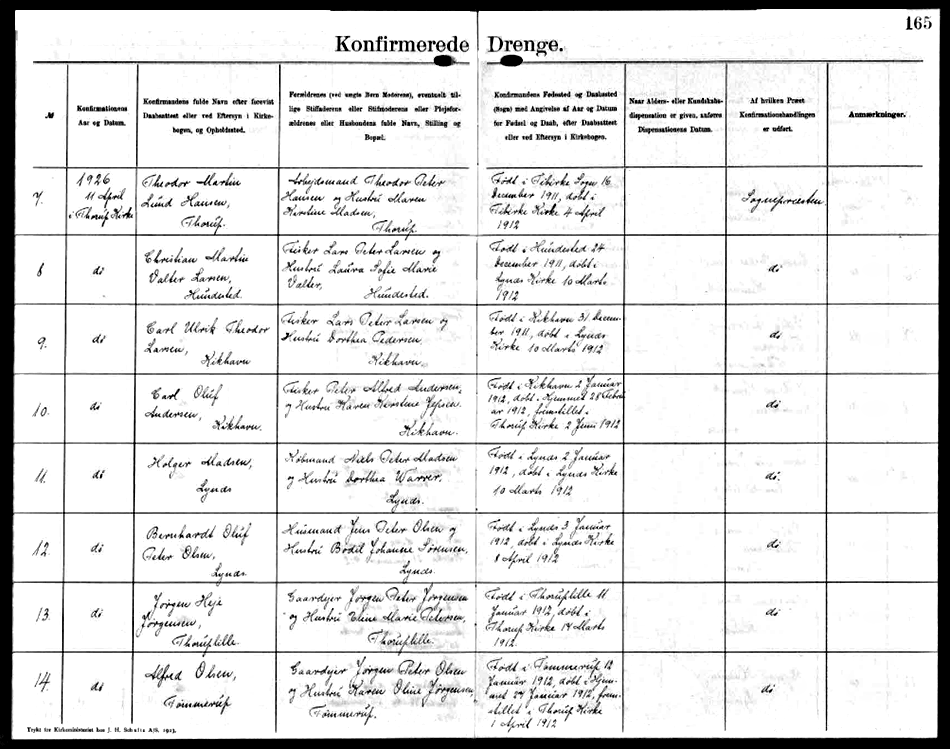 165
Konfirmerede Drenge.
№
Konfirmationens
Aar og Datum.
Konfirmandens fulde Navn efter forevist
Daabsattest eller ved Eftersyn i Kirke-
bogen, og Opholdssted.
Forældrenes (ved uægte Børn Moderens), eventuelt til-
lige Stiffaderens eller Stifmoderens eller Plejefor-
ældrenes eller Husbondens fulde Navn, Stilling og
Bopæl.
Konfirmandens Fødested og Daabssted
(Sogn) med Angivelse af Aar og Datum
for Fødsel og Daab, efter Daabsattest
eller ved Eftersyn i Kirkebogen.
Naar Alders- eller Kundskabs-
dispensation er given, anføres
Dispensationens Datum.
Af hvilken Præst
Konfirmationshandlingen
er udført.
Anmærkninger.
7.
1926
11 April
i Thorup Kirke
Theodor Martin
Lund Hansen,
Thorup.
Arbejdsmand Theodor Peter
Hansen og Hustru Maren
Kirstine Madsen,
Thorup.
Født i Tibirke Sogn 16
December 1911, døbt i
Tibirke Kirke 4 April
1912
Sognepræsten
8
do
Christian Martin
Valter Larsen,
Hundested.
Fisker Lars Peter Larsen og
Hustru Laura Sofie Marie
Valter,
Hundested.
Født i Hundested 24
December 1911, døbt i
Lynds Kirke 10 Marts
1912
do
9.
do
Carl Ulrik Theodor
Larsen,
Kikhavn
Fisker Lars Peter Larsen og
Hustru Dorthea Pedersen,
Kikhavn.
Født i Kikhavn 31 Decem-
ber 1911, døbt i Lynds
Kirke 10 Marts 1912
do
10.
do
Carl Oluf
Andersen,
Kikhavn.
Fisker Peter Alfred Andersen,
og Hustru Karen Kirstine Jepsen
Kikhavn.
Født i Kikhavn 2 Januar
1912, døbt i Hjemmet 28 Febru
ar 1912, fremstillet i
Thorup Kirke 2 Juni 1912
do
11.
do
Holger Madsen,
Lynds
Købmand Niels Peter Madsen
og Hustru Dorthea Warrer,
Lynds.
Født i Lynds 2 Januar
1912, døbt i Lynds Kirke
10 Marts 1912
do.
12.
do
Bernhardt Oluf
Peter Olsen,
Lynds.
Husmand Jens Peter Olsen og
Hustru Bodil Johanne Sørensen,
Lynds.
Født i Lynds 3 Januar
1912, døbt i Lynds Kirke
8 April 1912
do
13.
do
Jørgen Heje
Jørgensen,
Thoruplille.
Gaardejer Jørgen Peter Jørgensen
og Hustru Eline Marie Petersen,
Thoruplille.
Født i Thoruplille 11
Januar 1912, døbt i
Thorup Kirke 14 Marts
1912.
do
14.
do
Alfred Olsen,
Tømmerup
Gaardejer Jørgen Peter Olsen
og Hustru Karen Oline Jørgensen,
Tømmerup.
Født i Tømmerup 12
Januar 1912, døbt i Hjem-
met 27 Januar 1912, frem-
stillet i Thorup Kirke
1 April 1912
do
Trykt for Kirkeministeriet hos J. H. Schultz A/S. 1923.